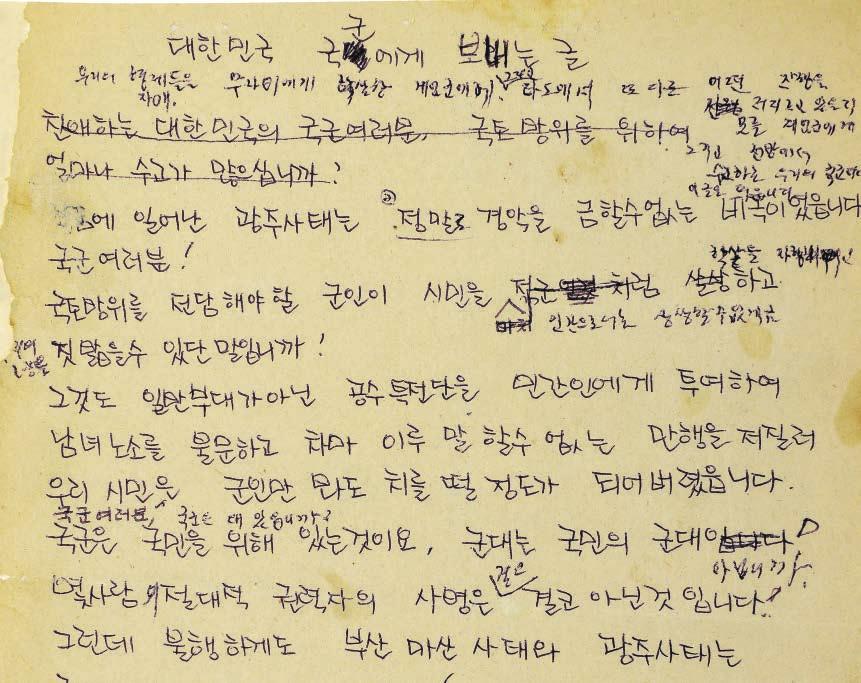 대한민국 국군에게 보내는 글
우리의 형제들을 무자비에게 학살한 계엄군에게. 타도에서 또 다른 어떤 만행을
자매.
저지르고 있는지
모를 계엄군에게
친애하는 대한민국의 국군여러분, 국토방위를 위하여
그리고 전방에서
얼마나 수고가 많으십니까?
수고하는 우리의 국군에게
이글을 띄웁니다
에 일어난 광주사태는 정말로 경악을 금할수 없는 비극이었읍니다
국군여러분!
학살을 자행
국토방위를 전담해야할 군인이 시민을 적군 처럼 살상하고
인간으로서는 상상할수없게끔
짓밟을수 있단 말입니까!
그것도 일반부대가아닌 공수특전단을 민간인에게 투여하여
남녀노소를 불문하고 차마 이루 말 할수 없는 만행을 저질러
우리 시민은 군인만 봐도 치를 떨 정도가 되어버렸읍니다.
국군여러분, 국군은 왜 있읍니까?
국군은 국민을 위해 있는것이요, 군대는 국민의 군대입니다
아닙니까?
같은
몇사람 절대적 권력자의 사병은 결코 아닌것 입니다!
그런데 불행하게도 부산 마산 사태와 광주사태는